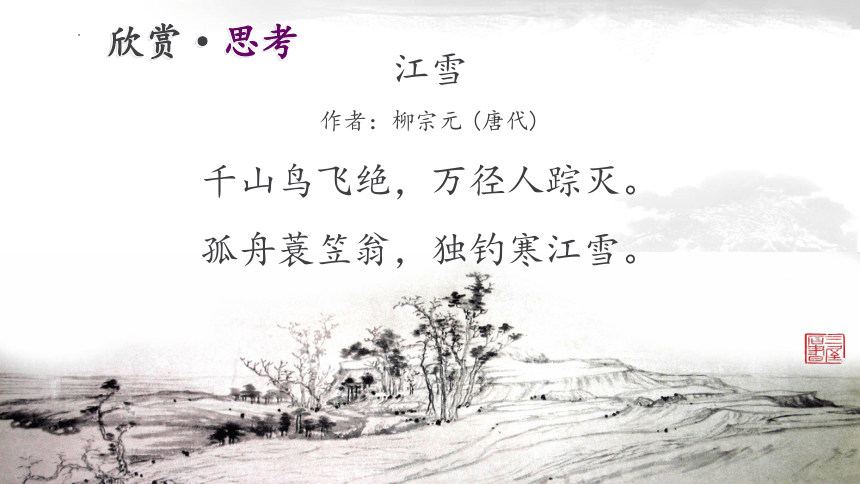 欣赏·思考
江雪
作者：柳宗元（唐代）
千山鸟飞绝，万径人踪灭。
孤舟蓑笠翁，独钓寒江雪。